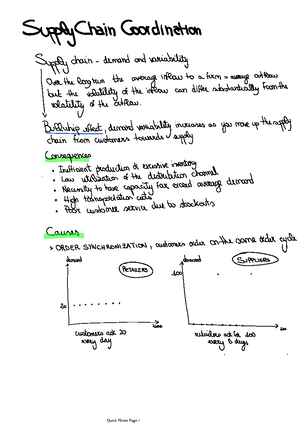 Supply Chain Coordination
Supply chain - demand and variability
Over the long term the average inflow to a firm = average outflow
but the volatility of the inflow can differ substantially from the
volatility of the outflow.
Bullwhip effect, demand variability increases as you move up the supply
chain from customers towards supply
Consequences
• Inefficient production or excessive inventory
• Low utilization of the distribution channel
• Necessity to have capacity far exceed average demand
• High transportation costs
• Poor customer service due to stockouts
Causes
> ORDER SYNCHRONIZATION, customers order on the same order cycle
demand
RETAILERS
20
time
customers ask 20
every day
demand
SUPPLIERS
100
time
retailers ask for 100
every 5 days
Quick Notes Page 1